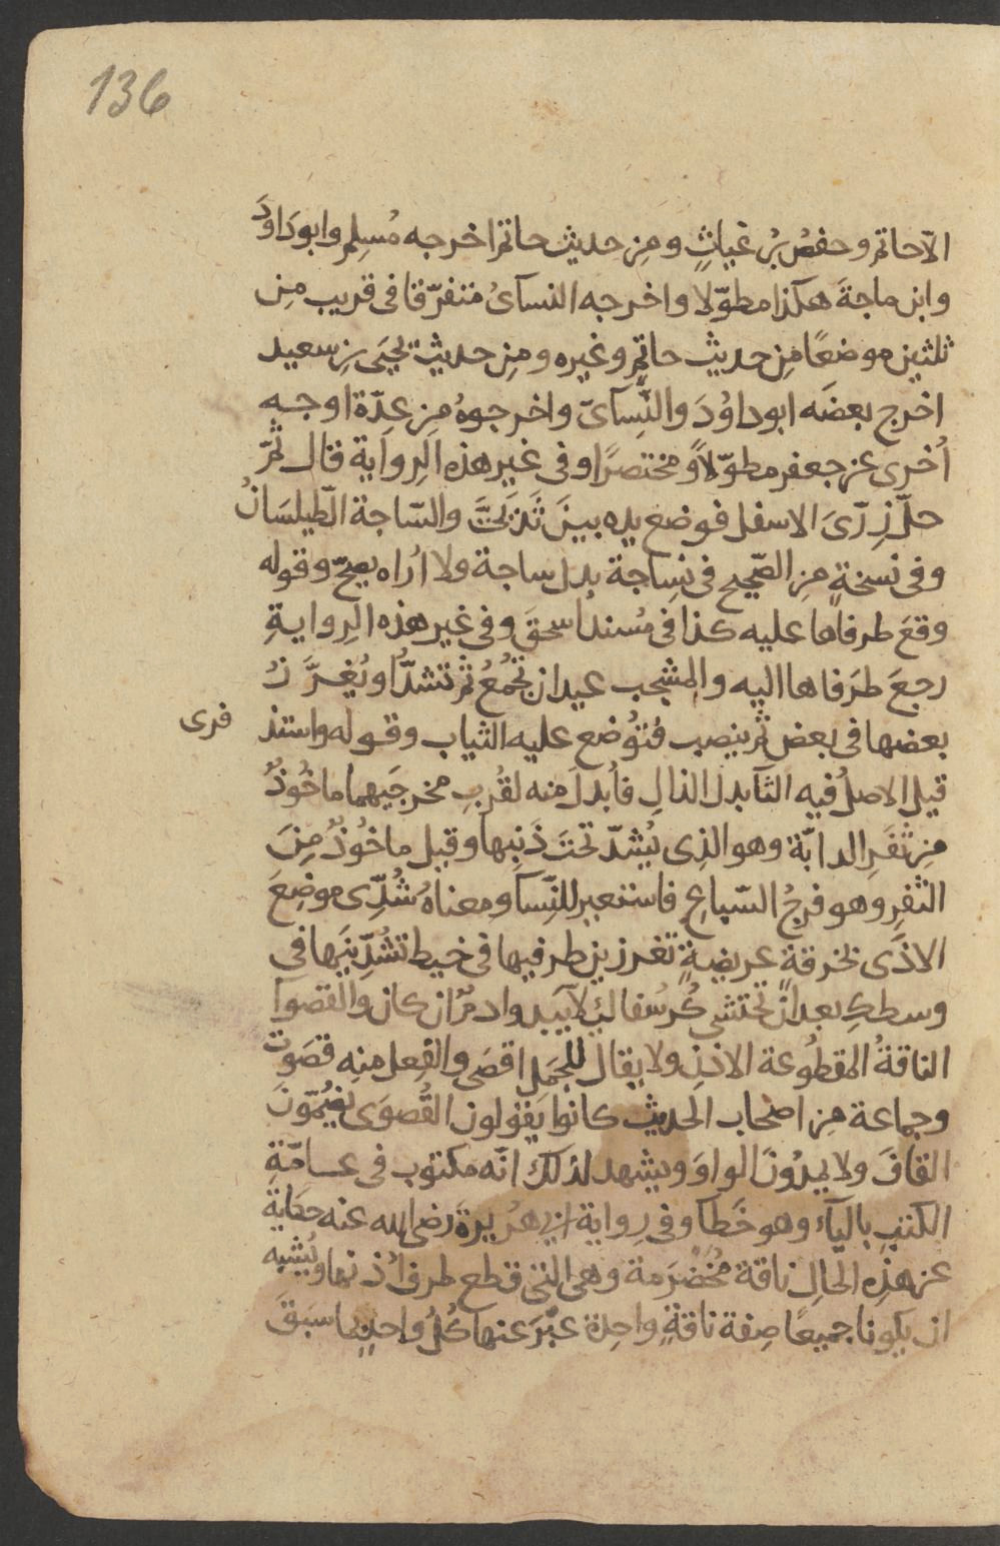 136
الّا حاتم وحفصُ بنُ غياثٍ ومِن حديث حاتم اخرجه مُسلِم وابوداوُدَ
وابن ماجةَ هكذا مطوّلا واخرجه النسآىُ متفرّقا فى قريب مِن
ثلثين موضعًا مِن حديث حاتمٍ وغيره ومِن حديث يحيَى بنِ سعيد
اخرج بعضَه ابوداوُدَ والنِّسآىّ واخرجوهُ مِن عِدّة اوجه
اُخرى عن جعفر مطوّلاً ومختصرًا وفى غير هذه الرِواية قال ثمّ
حلّ زِرّىَ الاسفل فوضع يده بينَ ثَديَىَّ والسّاجة الطّيلسَانُ
وفى نسخةٍ مِن الصّحيح فى نِساجة بدل ساجة ولا اُراه يصحّ وقوله
وقعَ طرفاها عليه كذا فى مُسند اسحقَ وفى غير هذه الرِوايةِ
رجعَ طرَفاها اليه والمِشجب عيدان تُجمُعُ ثم تشدُّ او يُغرَّزُ
بعضها فى بعض ثم ينصب فتُوضع عليه الثياب وقوله واستذ
فرى
قيل الاصلُ فيه الثآ بدل الذالِ فاُبدلَ منه لقُربِ مخرجَيهما ماخُوذٌ
مِن ثَفَرِ الدابّة وهو الذِى يُشدّ تحتَ ذَنبِها وقيل ماخُوذٌ مِنَ
الثفرِ وهو فرجُ السّباعِ فاستعير للنِّسآ ومعناهُ شُدِّى موضِعَ
الاذَى بخرقة عريضةٍ تغرزين طرفيها فى خيط تشُدِّينَها فى
وسطكِ بعد انْ تحتشى كُرسُفا لِيلا يبدوا دمٌ ان كان والقصوآ
الناقةُ المقطُوعة الاذنِ ولا يقال للجَمل اقصَى والفِعل منِه قصَوت
وجماعة مِن اصحاب الحديث كانوا يقولون القُصوَى يضُمّونَ
القافَ ولا يمدُونَ الواوَ ويشهد لذلكَ انّه مكتوب فى عامّةِ
الكتبِ باليآء وهو خَطآ وفى رِواية ابِى هُريرةَ رضى الله عنه حكايةً
عن هذِه الحالِ ناقة مُخَضْرَمة وهى التى قطع طرف اُذنها ويُشبه
ان يكونا جميعًا صِفة ناقةٍ واحِدة عبّرَ عنها كُلُّ واحدٍ بِما سَبَقَ